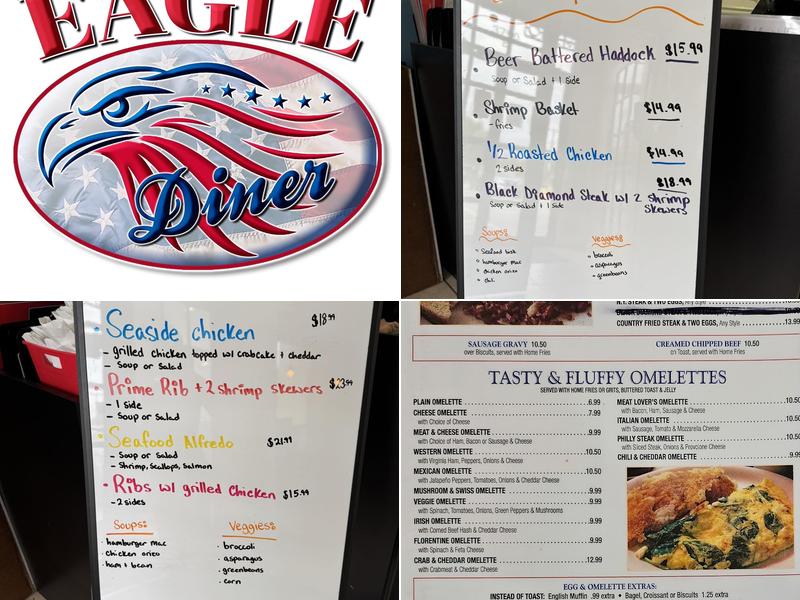 EAGLE
Diner
Beer Battered Haddock $15.99
Soup or Salad + 1 Side
Shrimp Basket $14.99
- fries
1/2 Roasted Chicken $14.99
2 sides
$18.99
Black Diamond Steak w/ 2 shrimp skewers
Soup or Salad + 1 side
Soups:
Seafood bisk
hamburger mac
chicken orizo
chili
Veggies:
broccoli
asparagus
greenbeans
Seaside chicken $18.99
- grilled chicken topped w/ crabcake + cheddar
- Soup or Salad
Prime Rib + 2 shrimp skewers $23.99
- 1 side
- Soup or Salad
Seafood Alfredo $21.99
- Soup or Salad
- Shrimp, Scallops, Salmon
Ribs w/ grilled Chicken $15.99
- 2 sides
Soups:
hamburger mac
chicken orizo
ham + bean
Veggies:
broccoli
asparagus
greenbeans
corn
N.Y. STEAK & TWO EGGS, Any Style
COUNTRY FRIED STEAK & TWO EGGS, Any Style 13.99
SAUSAGE GRAVY 10.50
over Biscuits, served with Home Fries
CREAMED CHIPPED BEEF 10.50
on Toast, served with Home Fries
TASTY & FLUFFY OMELETTES
SERVED WITH HOME FRIES OR GRITS, BUTTERED TOAST & JELLY
PLAIN OMELETTE 6.99
CHEESE OMELETTE 7.99
with Choice of Cheese
MEAT & CHEESE OMELETTE 9.99
with Choice of Ham, Bacon or Sausage & Cheese
WESTERN OMELETTE 10.50
with Virginia Ham, Peppers, Onions & Cheese
MEXICAN OMELETTE 10.50
with Jalapeño Peppers, Tomatoes, Onions & Cheddar Cheese
MUSHROOM & SWISS OMELETTE 9.99
VEGGIE OMELETTE 9.99
with Spinach, Tomatoes, Onions, Green Peppers & Mushrooms
IRISH OMELETTE 9.99
with Corned Beef Hash & Cheddar Cheese
FLORENTINE OMELETTE 9.99
with Spinach & Feta Cheese
CRAB & CHEDDAR OMELETTE 12.99
with Crabmeat & Cheddar Cheese
MEAT LOVER'S OMELETTE 10.50
with Bacon, Ham, Sausage & Cheese
ITALIAN OMELETTE 10.50
with Sausage, Tomato & Mozzarella Cheese
PHILLY STEAK OMELETTE 10.50
with Sliced Steak, Onions & Provolone Cheese
CHILI & CHEDDAR OMELETTE 9.99
EGG & OMELETTE EXTRAS:
INSTEAD OF TOAST: English Muffin .99 extra • Bagel, Croissant or Biscuits 1.25 extra